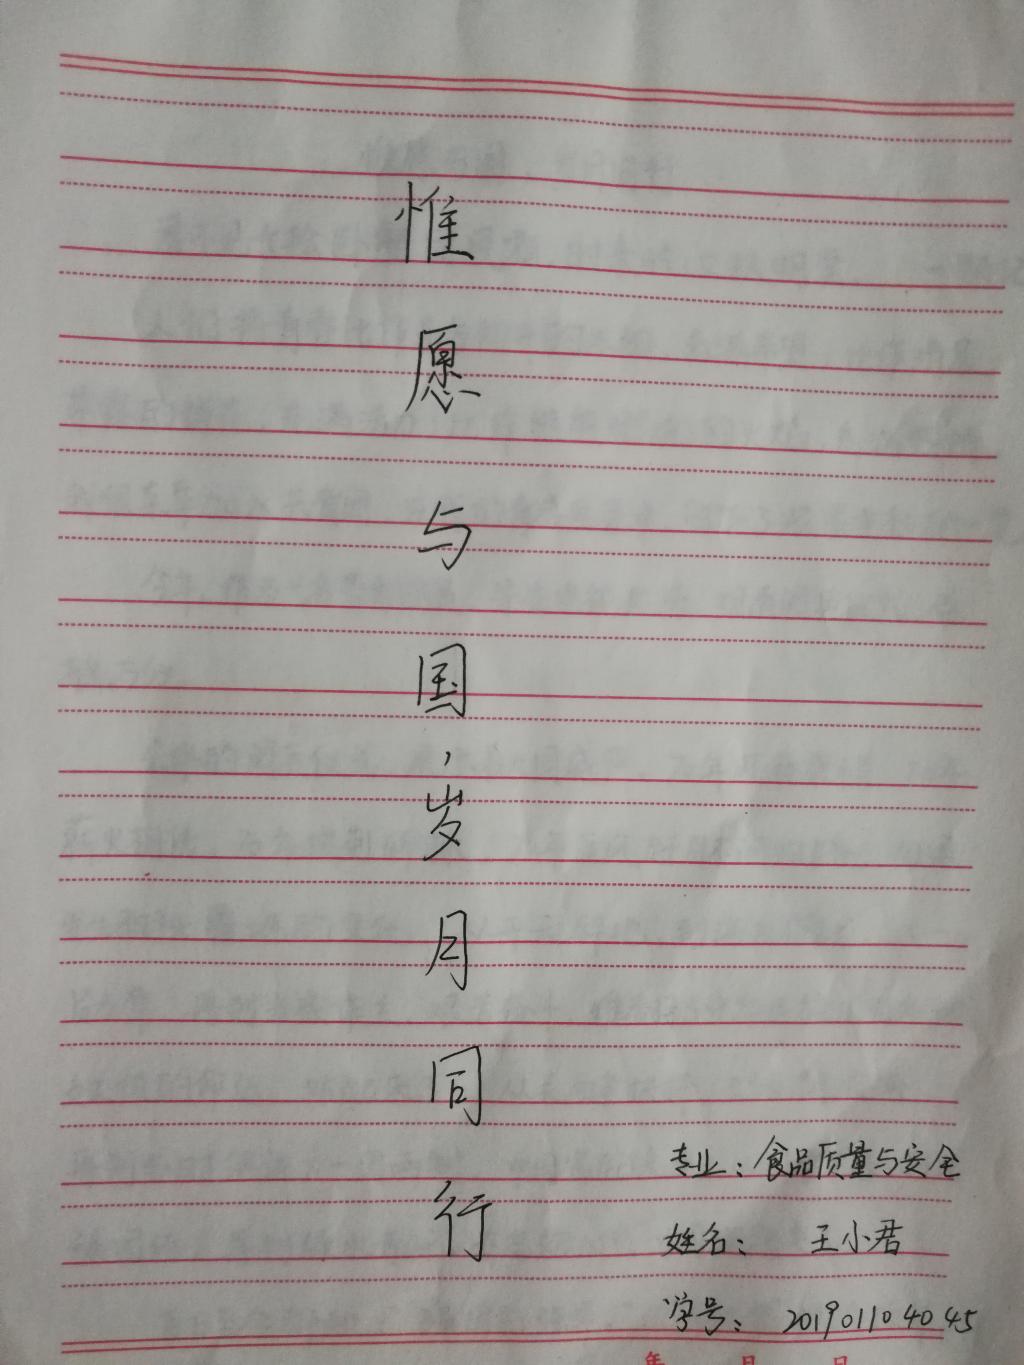 惟愿与国，岁月同行
专业：食品质量与安全
姓名：王小君
学号：201901104045
年 月 日